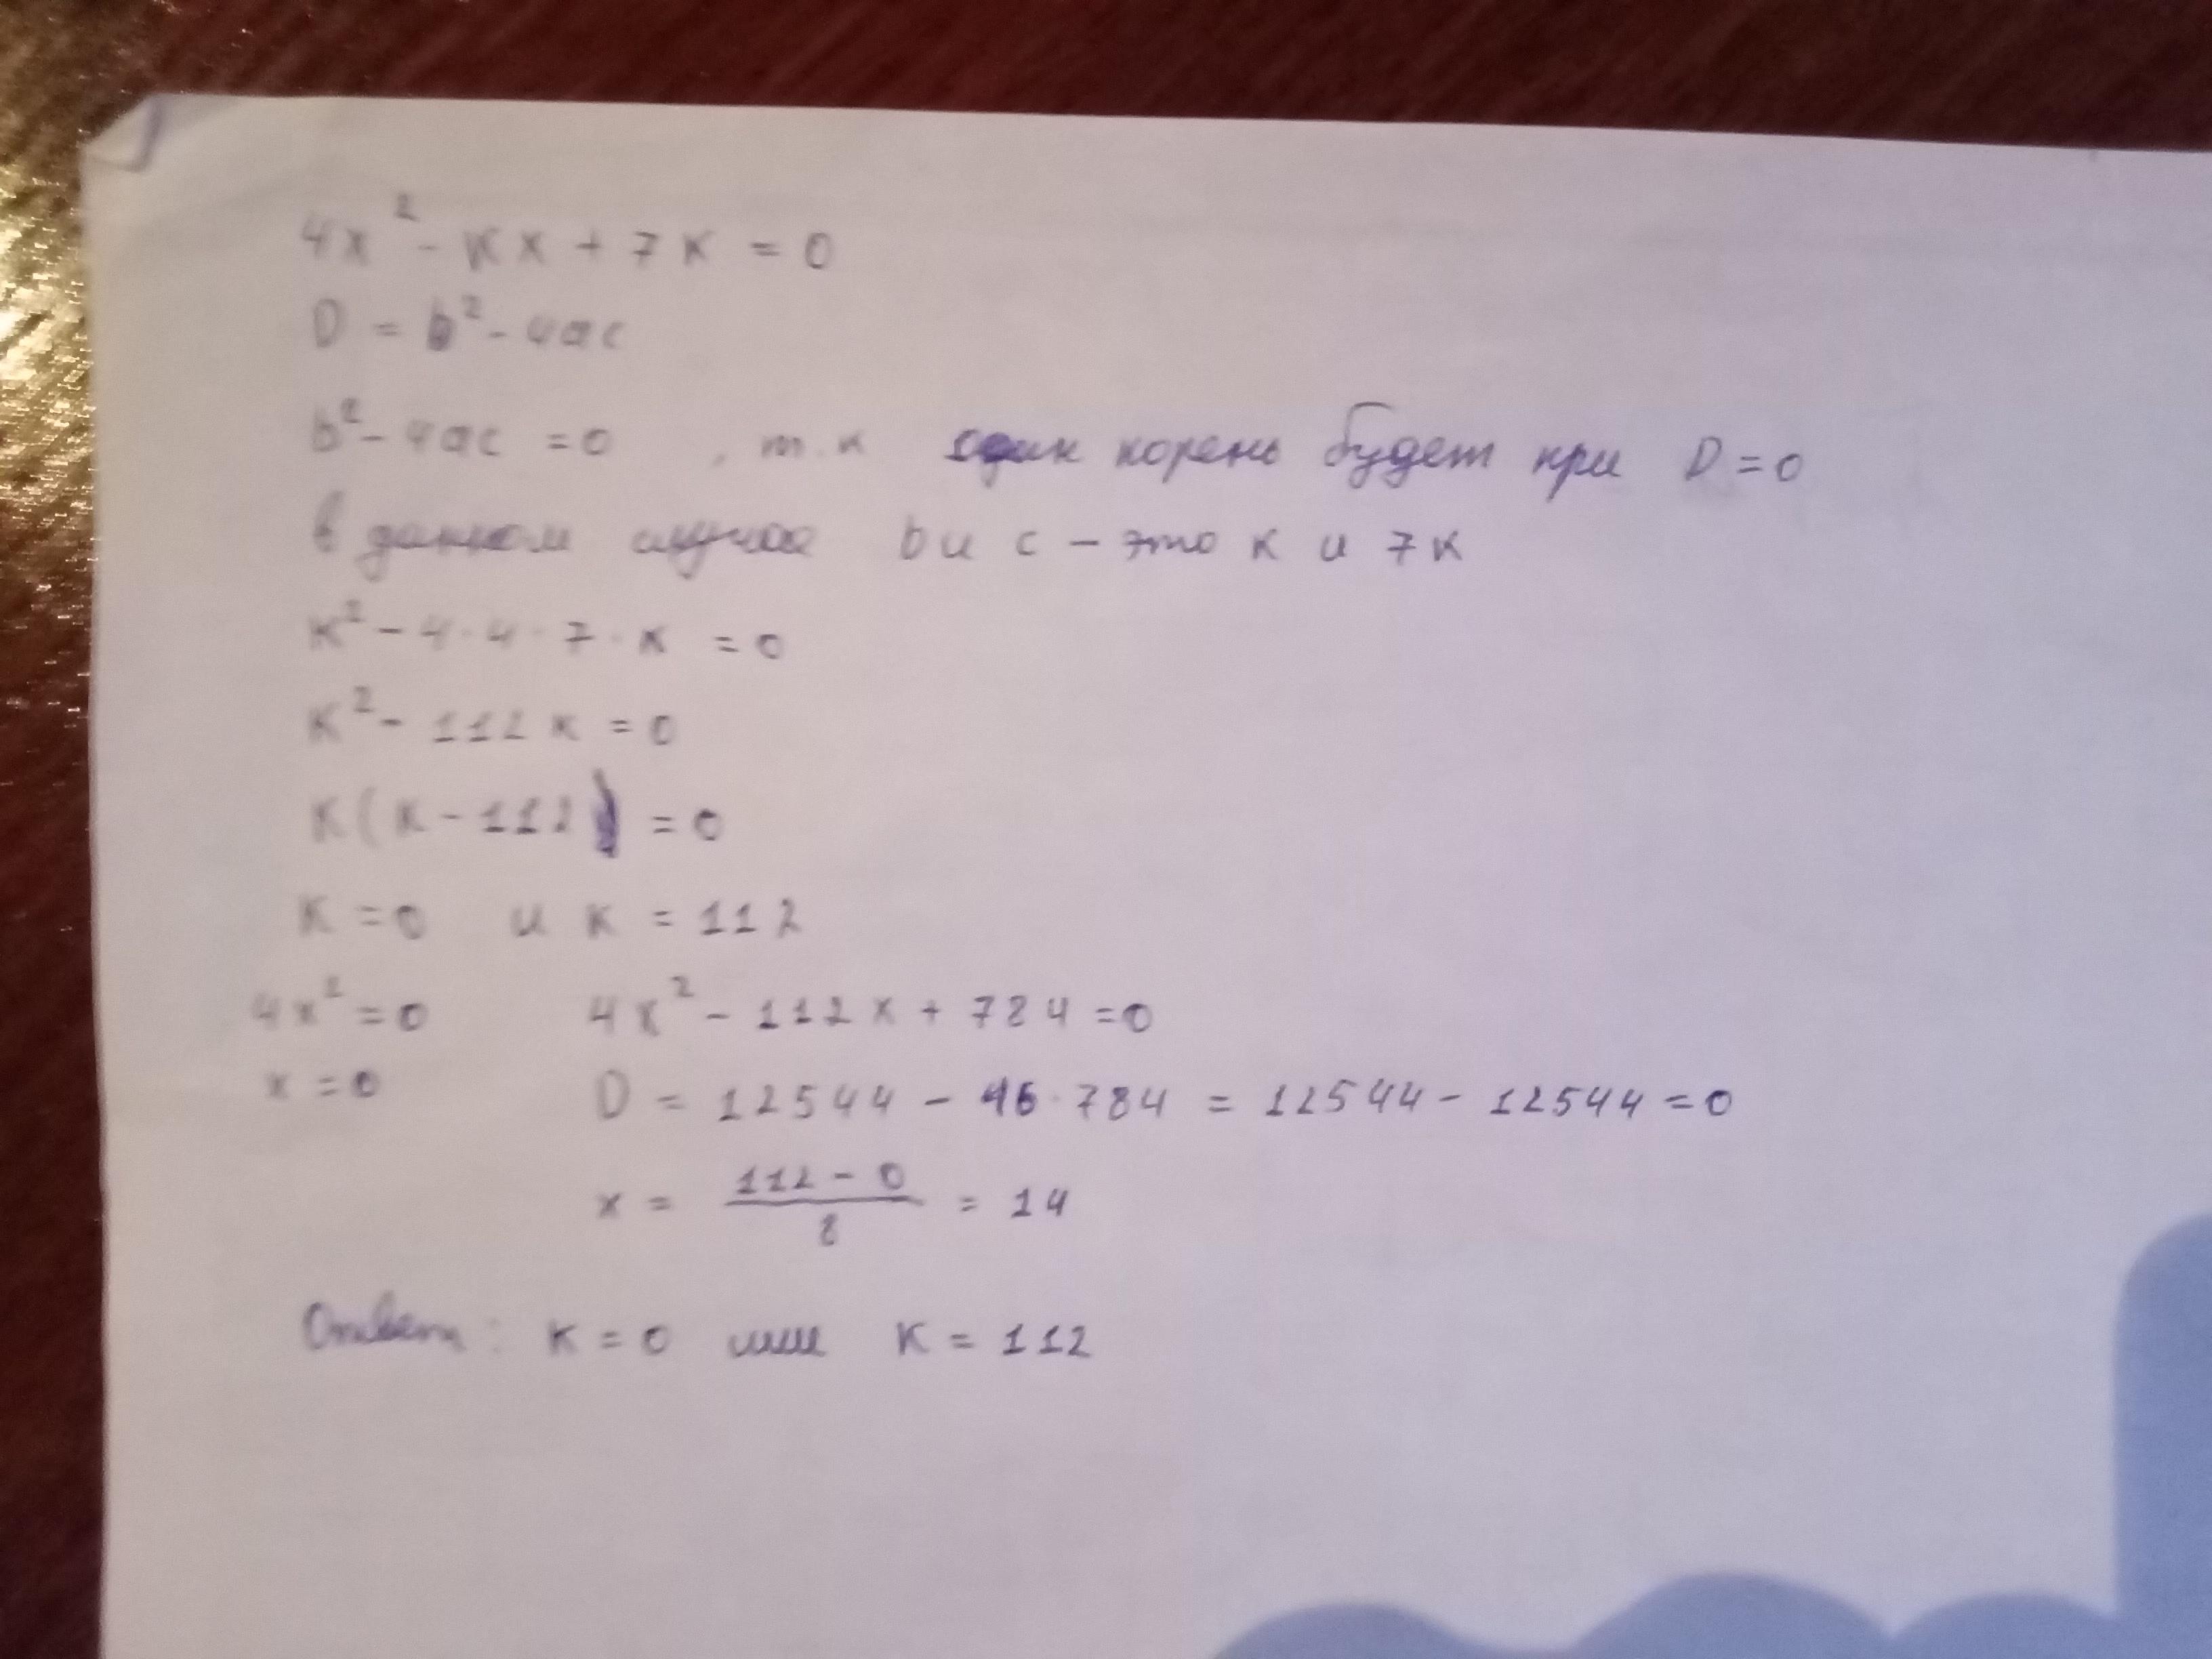 4x² - Kx + 7K = 0
D = b² - 4ac
b² - 4ac = 0 , т.к один корень будет при D = 0
в данном случае b и c - это к и 7к
K² - 4·4·7·K = 0
K² - 112K = 0
K(K - 112) = 0
K = 0 и K = 112
4x² = 0 4x² - 112x + 784 = 0
x = 0 D = 12544 - 16·784 = 12544 - 12544 = 0
x = \frac{112 - 0}{8} = 14
Ответ: K = 0 или K = 112